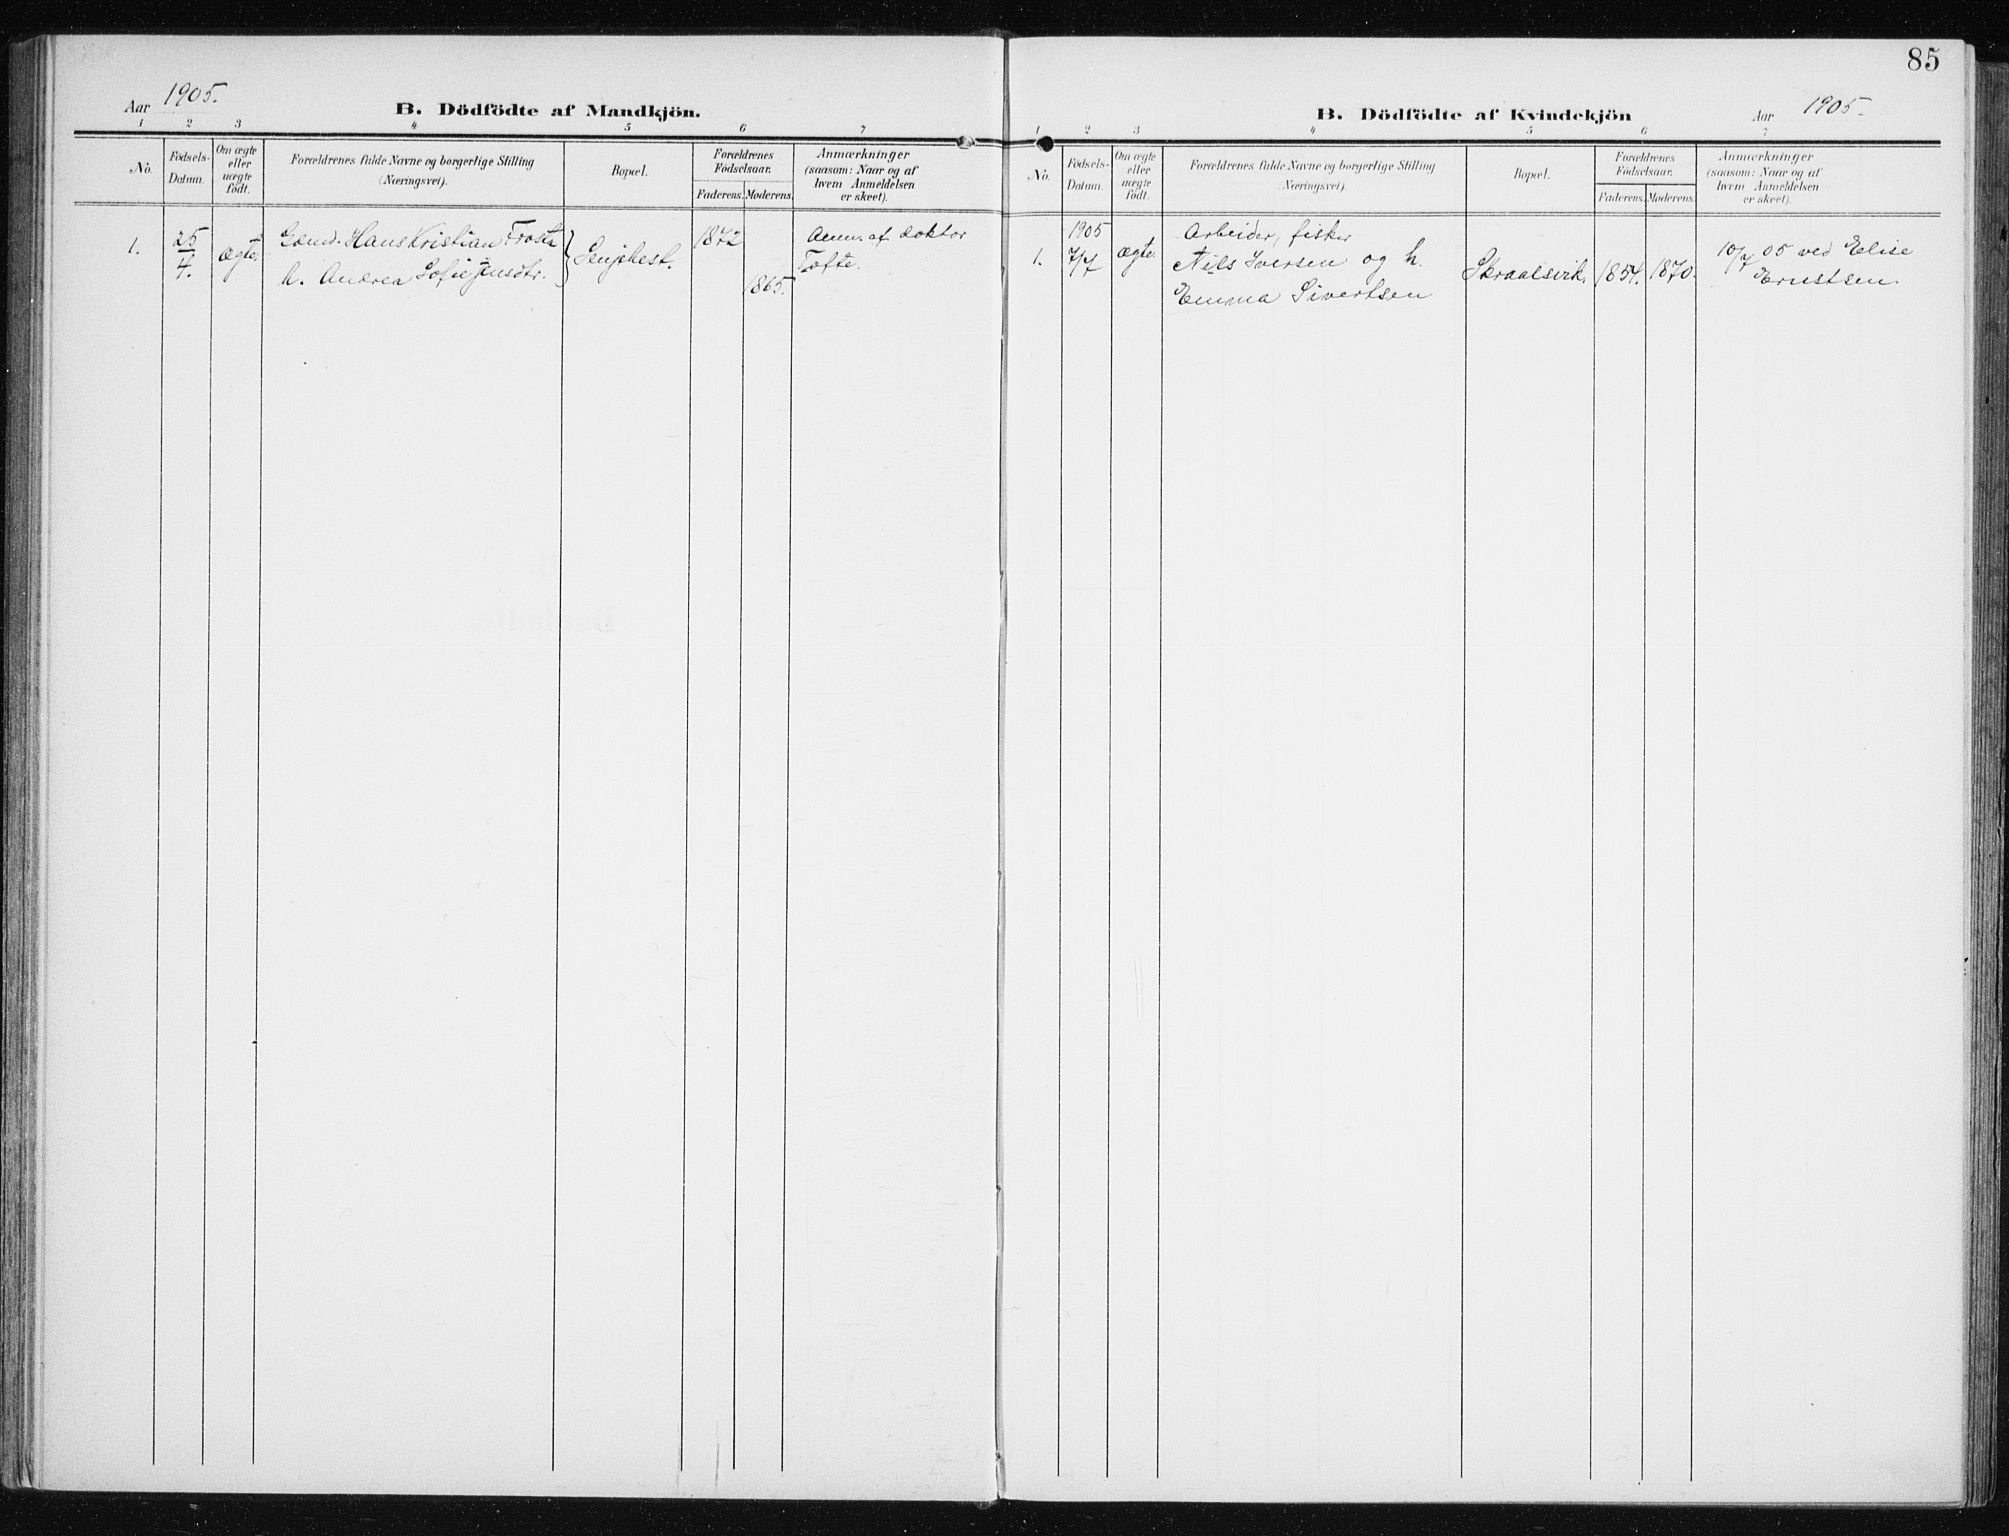 85
Aar 1905.
B. Dödfödte af Mandkjön.
1 2 3 4 5 6 7
No.
Födsels-
Datum.
Om ægte
eller
uægte
födt.
Forældrenes fulde Navne og borgerlige Stilling
(Næringsvei).
Bopæl.
Forældrenes
Födselsaar.
Faderens. Moderens.
Anmærkninger
(saasom: Naar og af
hvem Anmeldelsen
er skeet).
1.
25
4.
ægte.
Gæmd. Hans Kristian Frosta
h. Andrea Sofie Jensdtr.
Senjehest.
1872
1865.
Anm. af doktor
Tofte.
B. Dödfödte af Kvindekjön
Aar 1905.
1 2 3 4 5 6 7
No.
Födsels-
Datum.
Om ægte
eller
uægte
födt.
Forældrenes fulde Navne og borgerlige Stilling
Næringsvei).
Bopæl.
Forældrenes
Födselsaar.
Faderens. Moderens.
Anmærkninger
(saasom: Naar og af
hvem Anmeldelsen
er skeet).
1.
1905
7/7
ægte.
Arbeider, fisker
Nils Iversen og h.
Emma Sivertsen
Skraalsvik.
1854.
1870.
10/7 05 ved Elise
Ernstsen.